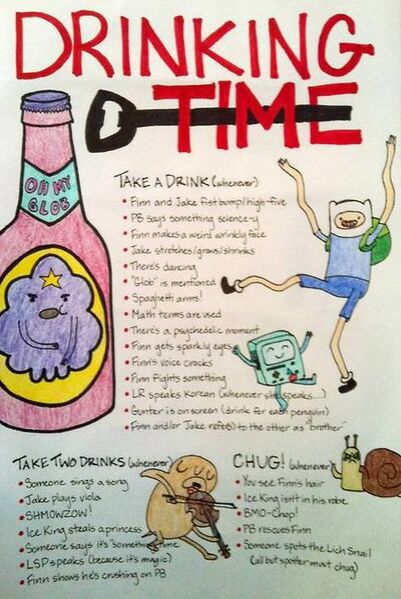 DRINKING
TIME
OH MY
GLOB
TAKE A DRINK (whenever)
• Finn and Jake fistbump/high-five
• PB says something science-y
• Finn makes a weird wrinkly face
• Jake stretches/grows/shrinks
• There's dancing
• "Glob" is mentioned
• Spaghetti arms!
• Math terms are used
• There's a psychedelic moment
• Finn gets sparkly eyes
• Finn's voice cracks
• Finn fights something
• LR speaks Korean (whenever she speaks...)
• Gunter is on screen (drink for each penguin)
• Finn and/or Jake refer(s) to the other as "brother"
TAKE TWO DRINKS (whenever)
• Someone sings a song
• Jake plays viola
• SHMOWZOW!
• Ice King steals a princess
• Someone says it's "something" time
• LSP speaks (because it's magic)
• Finn shows he's crushing on PB
CHUG! (whenever)
• You see Finn's hair
• Ice King isn't in his robe
• BMO-Chop!
• PB rescues Finn
• Someone spots the Lich Snail
(all but spotter must chug)